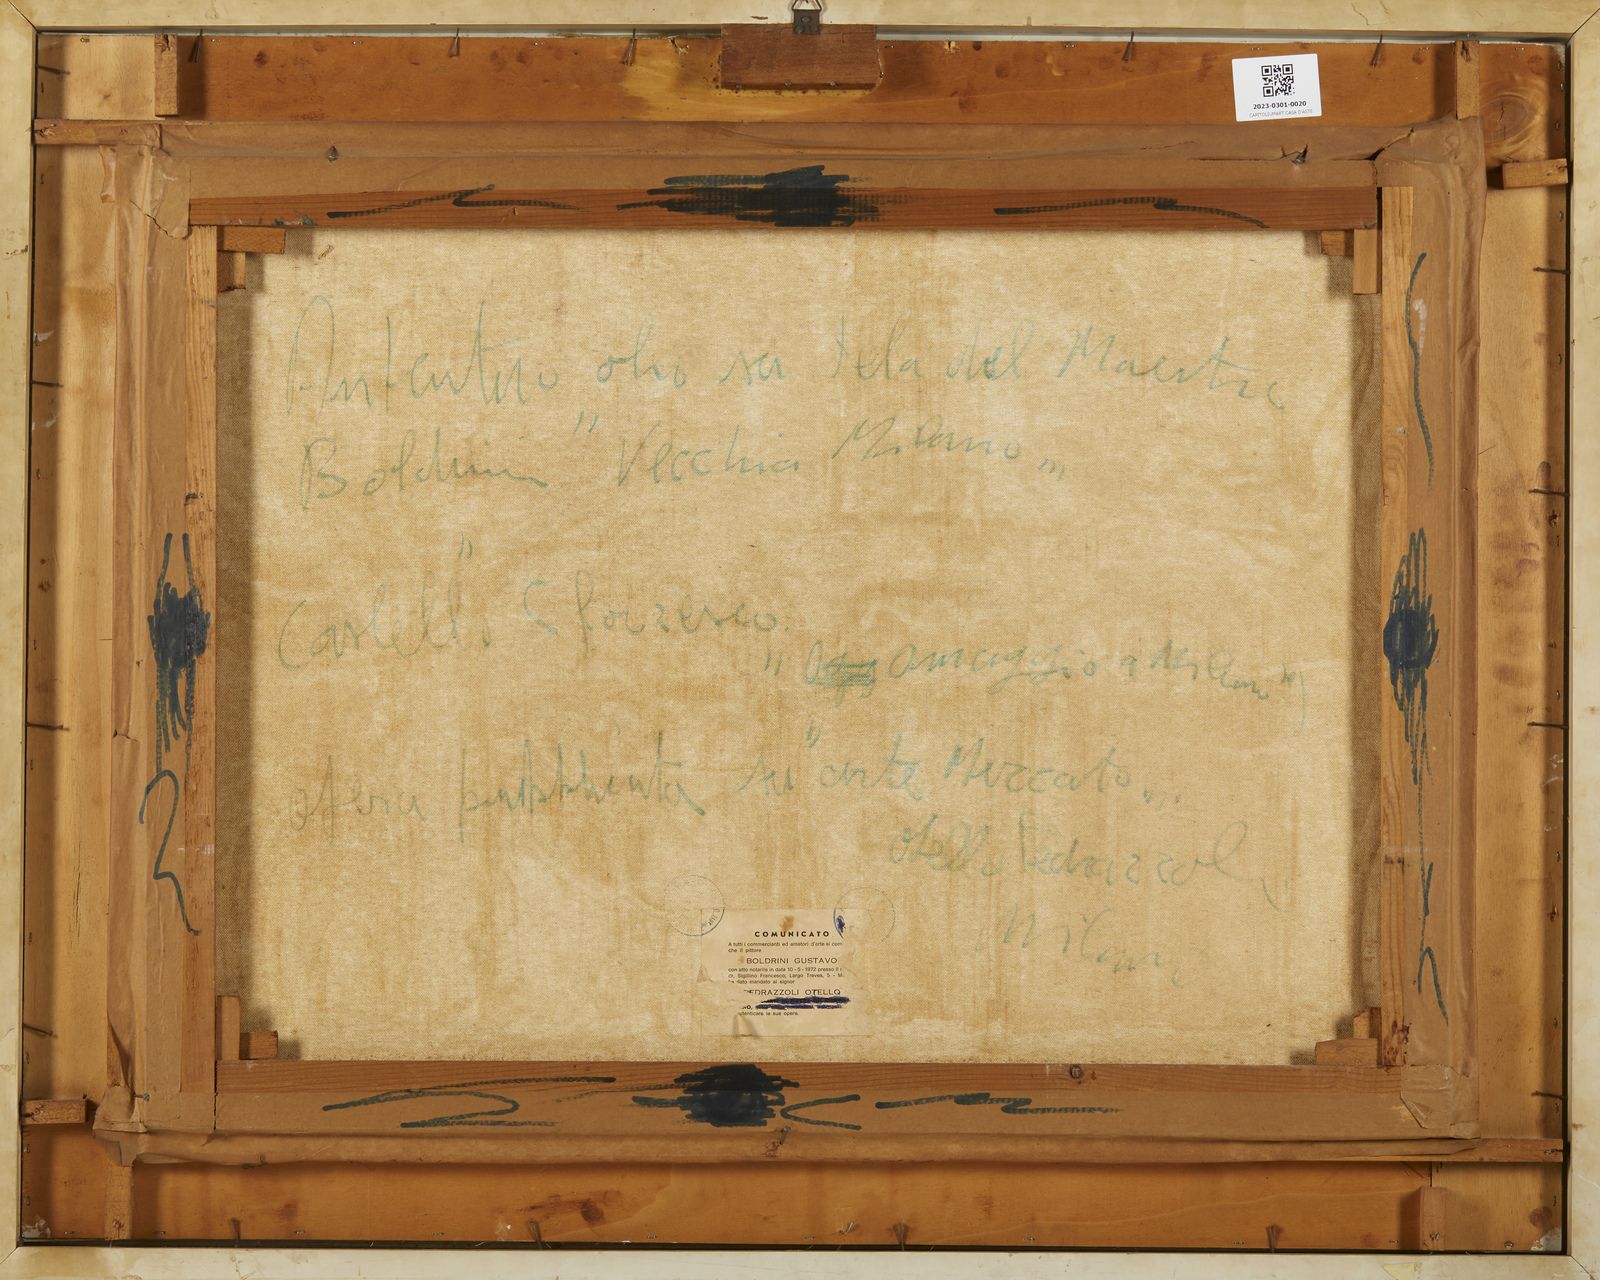 2023-0301-0020
CAPITOLIUMART CASA D'ASTE
Autentico olio su tela del Maestro
Boldrini " Vecchia Milano „
"
Castello Sforzesco.
" omaggio a Milano "
opera pubblicata su " arte Mercato „
Otello Pedrazzoli
Milano
COMUNICATO
A tutti i commercianti ed amatori d'arte si com
che il pittore
BOLDRINI GUSTAVO
con atto notarile in data 10 - 5 - 1972 presso il
Sigillino Francesco, Largo Treves, 5 - M
dato mandato al signor
PEDRAZZOLI OTELLO
NO,
tenticare le sue opere.